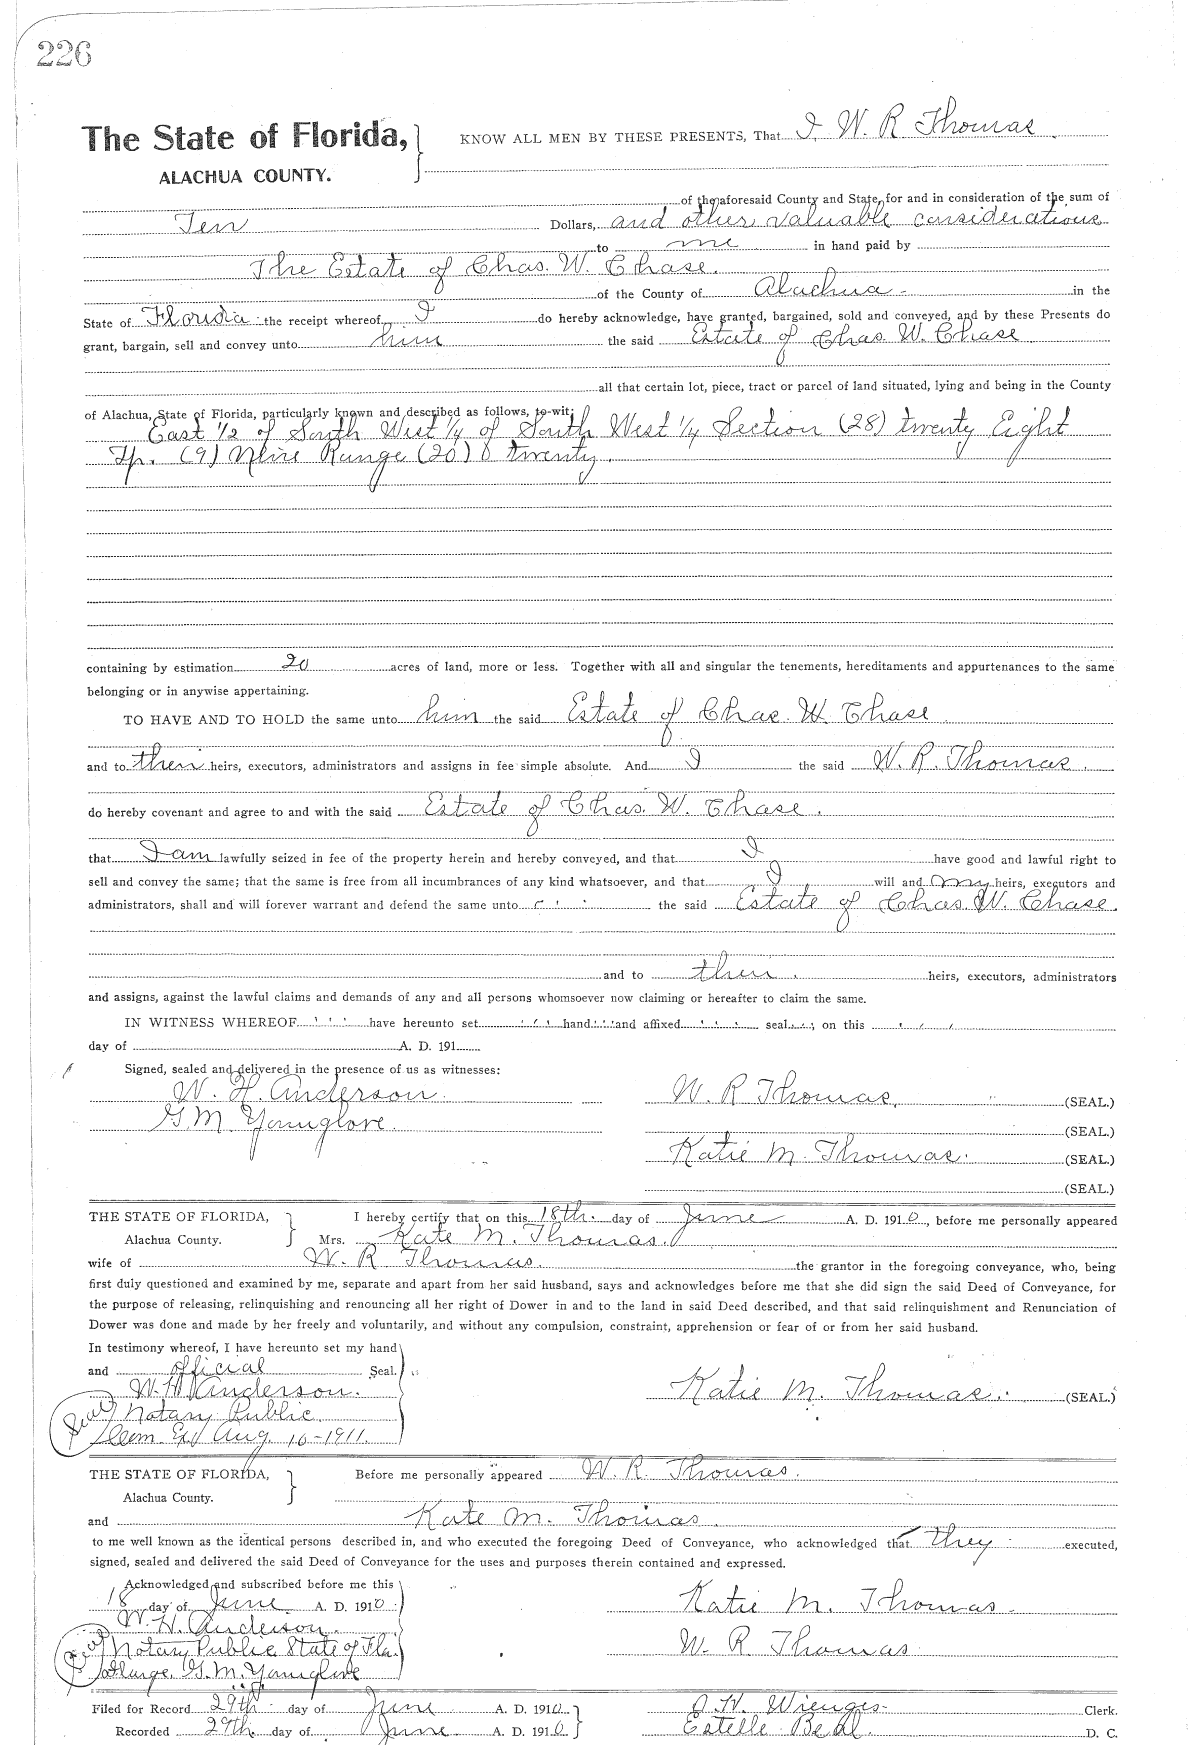 226
The State of Florida, KNOW ALL MEN BY THESE PRESENTS, That I, W. R Thomas
ALACHUA COUNTY.
of the aforesaid County and State, for and in consideration of the sum of
Ten Dollars, and other valuable considerations
to me in hand paid by
The Estate of Chas. W. Chase.
of the County of Alachua in the
State of Florida the receipt whereof I do hereby acknowledge, have granted, bargained, sold and conveyed, and by these Presents do
grant, bargain, sell and convey unto him the said Estate of Chas. W. Chase
all that certain lot, piece, tract or parcel of land situated, lying and being in the County
of Alachua, State of Florida, particularly known and described as follows, to-wit:
East 1/2 of South West 1/4 of South West 1/4 Section (28) twenty Eight
Tp. (9) Nine Range (20) twenty.
containing by estimation 20 acres of land, more or less. Together with all and singular the tenements, hereditaments and appurtenances to the same
belonging or in anywise appertaining.
TO HAVE AND TO HOLD the same unto him the said Estate of Chas. W. Chase
and to their heirs, executors, administrators and assigns in fee simple absolute. And I the said W. R. Thomas.
do hereby covenant and agree to and with the said Estate of Chas. W. Chase.
that I am lawfully seized in fee of the property herein and hereby conveyed, and that I have good and lawful right to
sell and convey the same; that the same is free from all incumbrances of any kind whatsoever, and that I will and my heirs, executors and
administrators, shall and will forever warrant and defend the same unto the said Estate of Chas. W. Chase.
and to their heirs, executors, administrators
and assigns, against the lawful claims and demands of any and all persons whomsoever now claiming or hereafter to claim the same.
IN WITNESS WHEREOF ' ' ' have hereunto set ' ' ' hand ' ' ' and affixed ' ' ' seal , on this ' ' '
day of A. D. 191
Signed, sealed and delivered in the presence of us as witnesses:
W. H. Anderson. W. R Thomas, (SEAL.)
G. M. Younglove. (SEAL.)
Katie M. Thomas. (SEAL.)
(SEAL.)
THE STATE OF FLORIDA, I hereby certify that on this 18th. day of June A. D. 1910, before me personally appeared
Alachua County. Mrs. Kate M. Thomas.
wife of W. R Thomas. the grantor in the foregoing conveyance, who, being
first duly questioned and examined by me, separate and apart from her said husband, says and acknowledges before me that she did sign the said Deed of Conveyance, for
the purpose of releasing, relinquishing and renouncing all her right of Dower in and to the land in said Deed described, and that said relinquishment and Renunciation of
Dower was done and made by her freely and voluntarily, and without any compulsion, constraint, apprehension or fear of or from her said husband.
In testimony whereof, I have hereunto set my hand
and official Seal.
W. H. Anderson. Katie M. Thomas. (SEAL.)
Seal Notary Public
Com. Ex Aug. 10-1911.
THE STATE OF FLORIDA, Before me personally appeared W. R. Thomas.
Alachua County.
and Kate M. Thomas.
to me well known as the identical persons described in, and who executed the foregoing Deed of Conveyance, who acknowledged that they executed,
signed, sealed and delivered the said Deed of Conveyance for the uses and purposes therein contained and expressed.
Acknowledged and subscribed before me this
18 day of June. A. D. 1910 Katie M. Thomas.
W. H. Anderson.
Seal Notary Public State of Fla. W. R Thomas
at large. G. M. Younglove
Filed for Record 29th day of June A. D. 1910 Clerk.
Recorded 29th. day of June A. D. 1910 Estelle Beal. D. C.